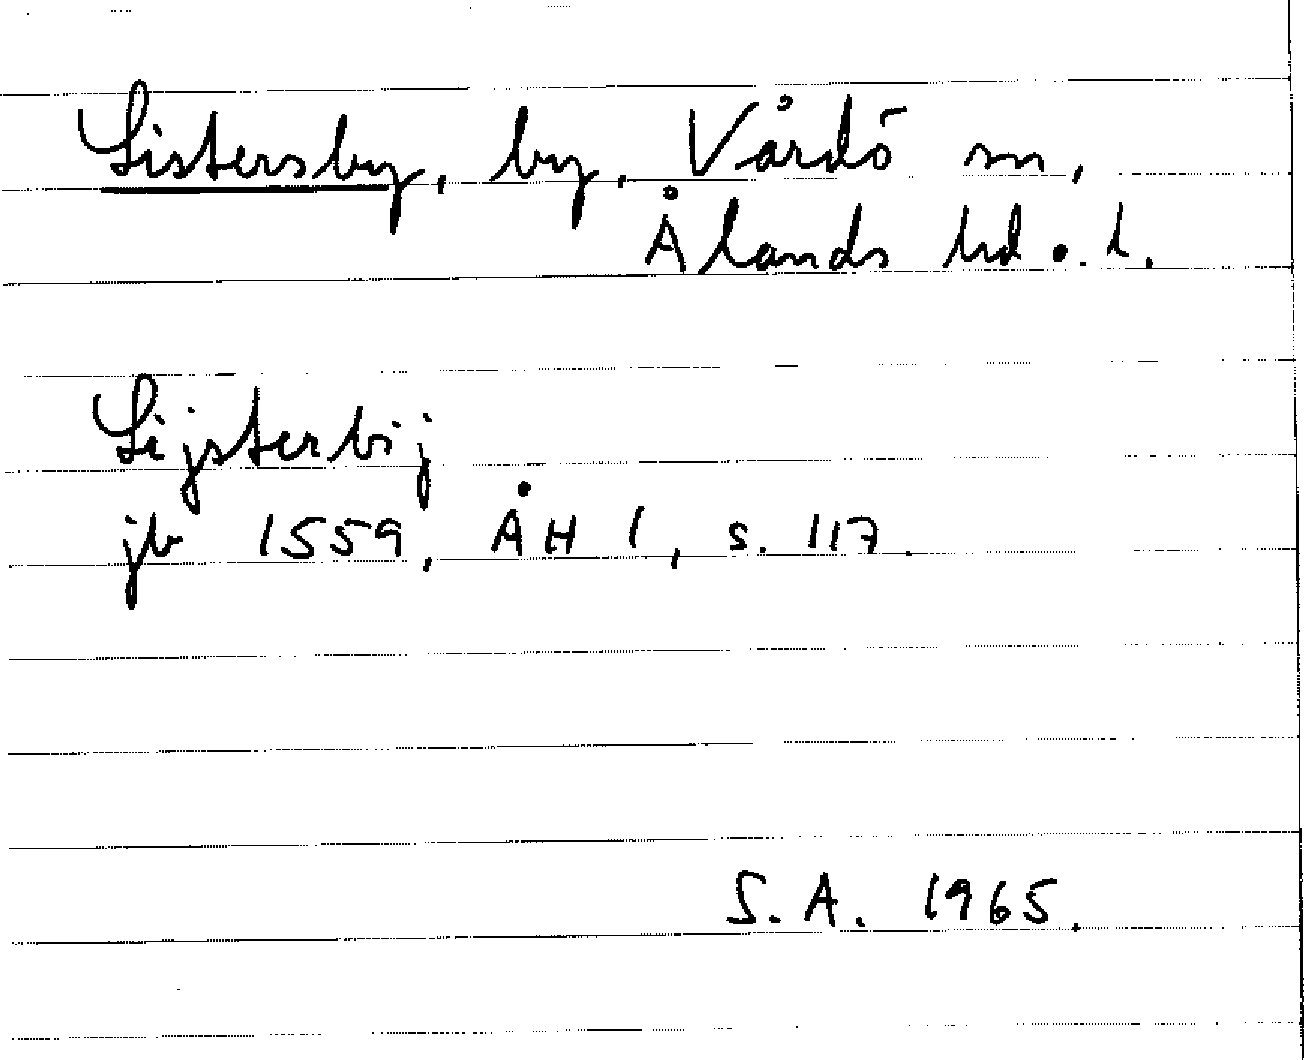 Listersby, by, Vårdö sn,
Ålands hd o. l.
Lijsterbij
jb 1559, ÅH 1, s. 117.
S.A. 1965.